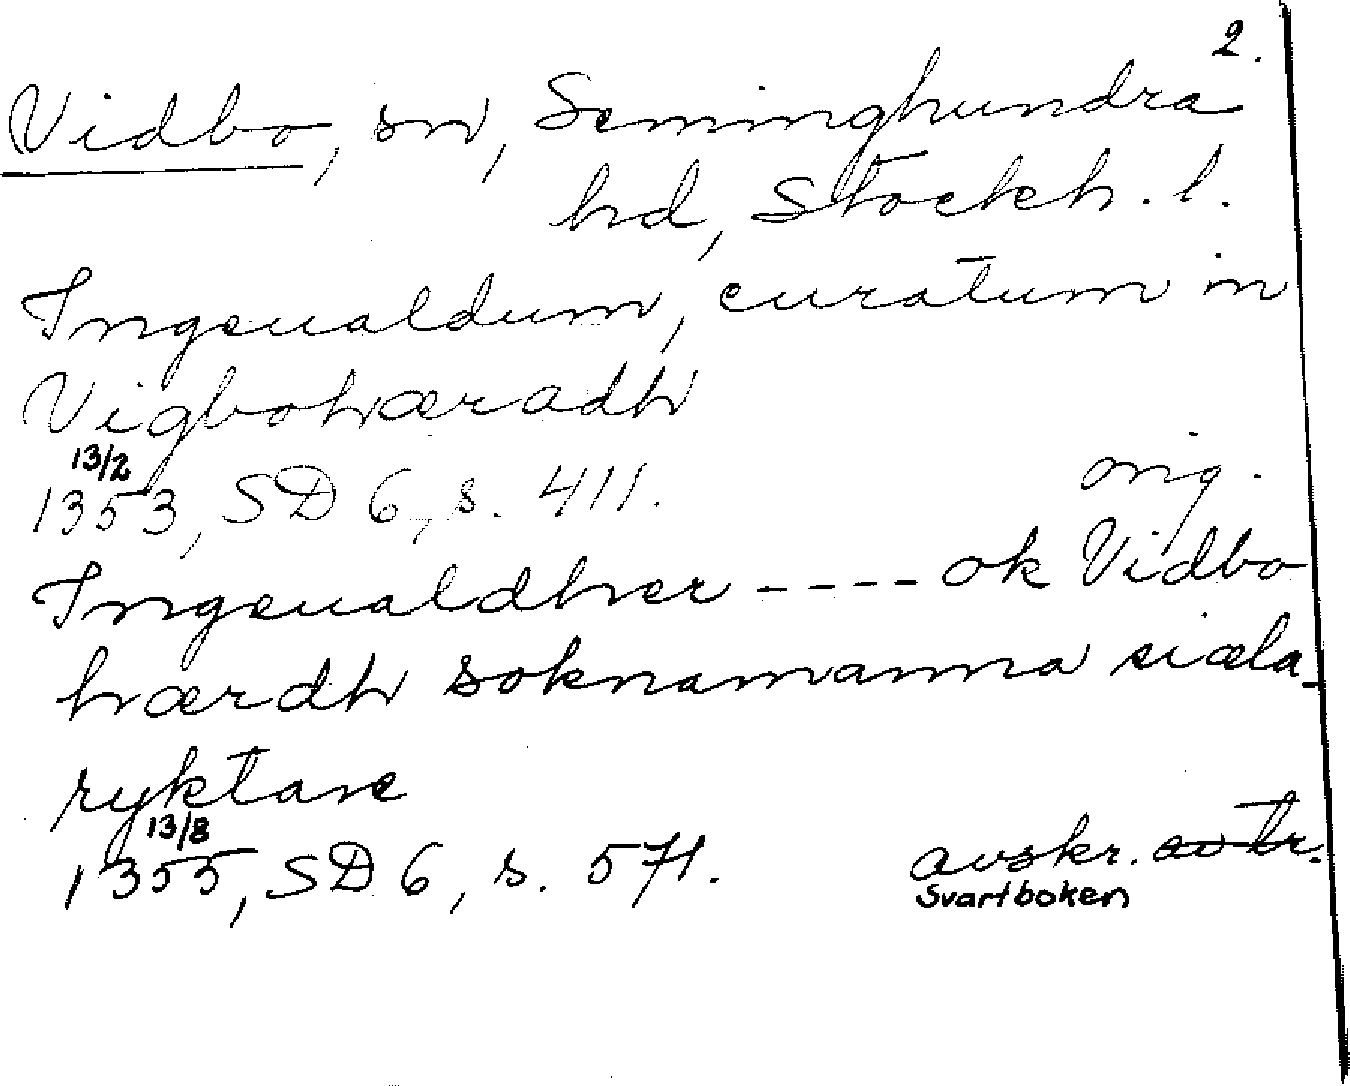 2.
Vidbo, sn, Seminghundra
hd, Stockh. l.
Ingeualdum, curatum in
Vigbohæradh
13/2
1353, SD 6, s. 411. orig.
Ingeualdher ---- ok Vidbo
hærdh soknamanna siæla-
ryktare
13/8
1355, SD 6, s. 571. avskr. av tr.
Svartboken